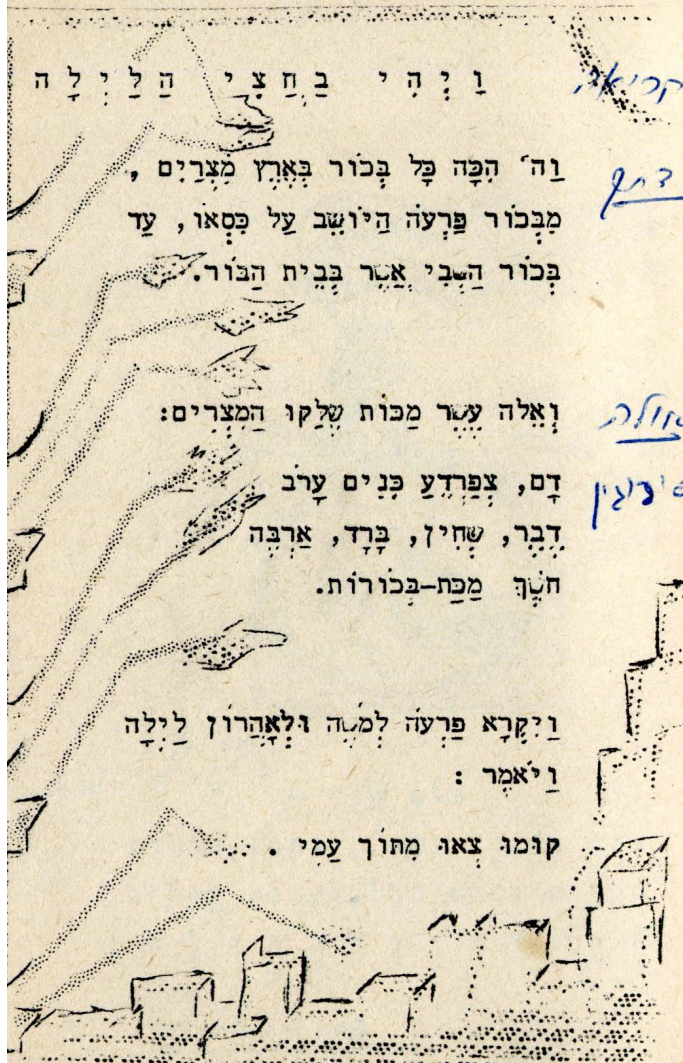 וַיְהִי בַּחֲצִי הַלַּיְלָה
וַה' הִכָּה כָּל בְּכוֹר בְּאֶרֶץ מִצְרַיִם,
מִבְּכוֹר פַּרְעֹה הַיּוֹשֵׁב עַל כִּסְאוֹ, עַד
בְּכוֹר הַשְּׁבִי אֲשֶׁר בְּבֵית הַבּוֹר.
וְאֵלֶּה עֶשֶׂר מַכּוֹת שֶׁלָּקוּ הַמִּצְרִים:
דָּם, צְפַרְדֵּעַ כִּנִּים עָרֹב
דֶּבֶר, שְׁחִין, בָּרָד, אַרְבֶּה
חֹשֶׁךְ מַכַּת-בְּכוֹרוֹת.
וַיִּקְרָא פַּרְעֹה לְמֹשֶׁה וּלְאַהֲרוֹן לַיְלָה
וַיֹּאמֶר :
קוּמוּ צְאוּ מִתּוֹךְ עַמִּי .